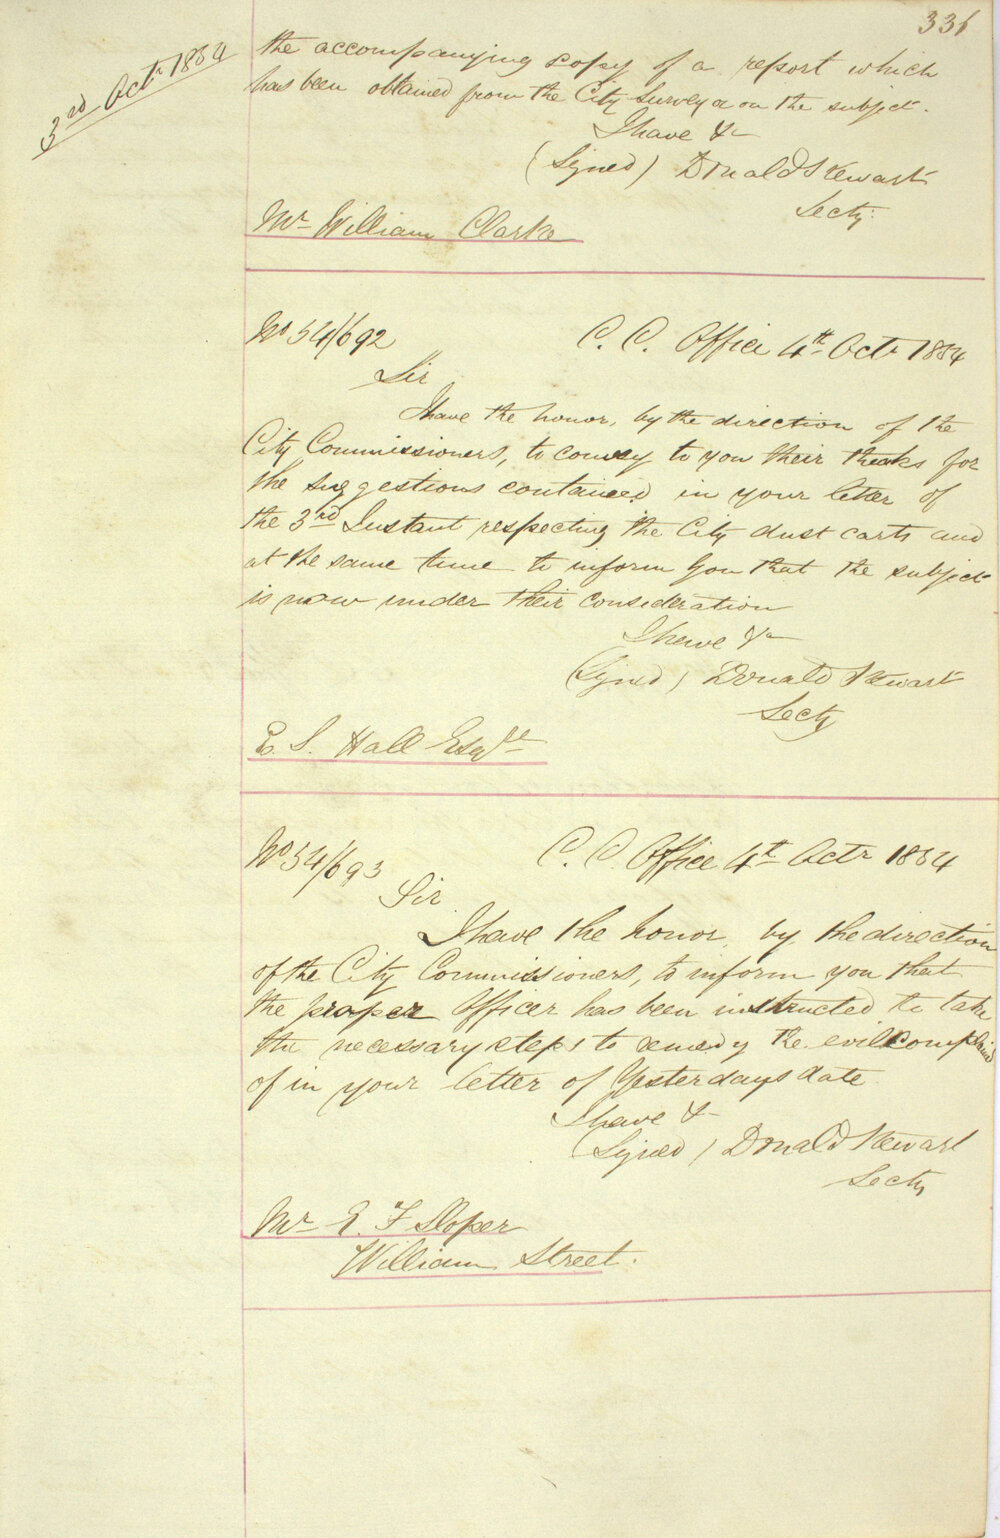 331
3rd Octr 1854
the accompanying copy of a report which
has been obtained from the City Surveyor on the subject.
I have &c
(Signed) Donald Stewart
Secty.
Mr William Clarke
No 54/692
C. C. Office 4th Octr 1854
Sir
I have the honor, by the direction of the
City Commissioners, to convey to you their thanks for
the suggestions contained in your letter of
the 3rd Instant respecting the City dust carts and
at the same time to inform you that the subject
is now under their consideration
I have &c
(Signed) Donald Stewart
Secty
E. S. Hall Esqre
No 54/693
C. C. Office 4th Octr 1854
Sir
I have the honor, by the direction
of the City Commissioners, to inform you that
the proper Officer has been instructed to take
the necessary steps to remedy the evil complained
of in your letter of Yesterdays date
I have &
(Signed) Donald Stewart
Secty
Mr E. F Sloper
William Street.